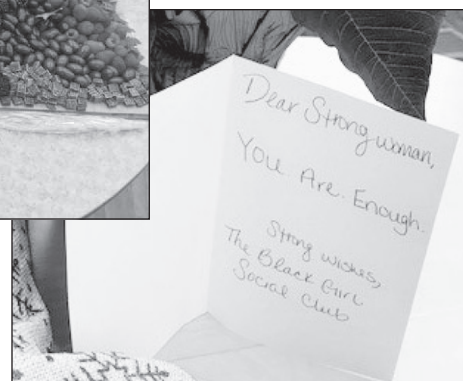 Dear Strong woman,
You. Are. Enough.
Strong wishes,
The Black Girl
Social Club